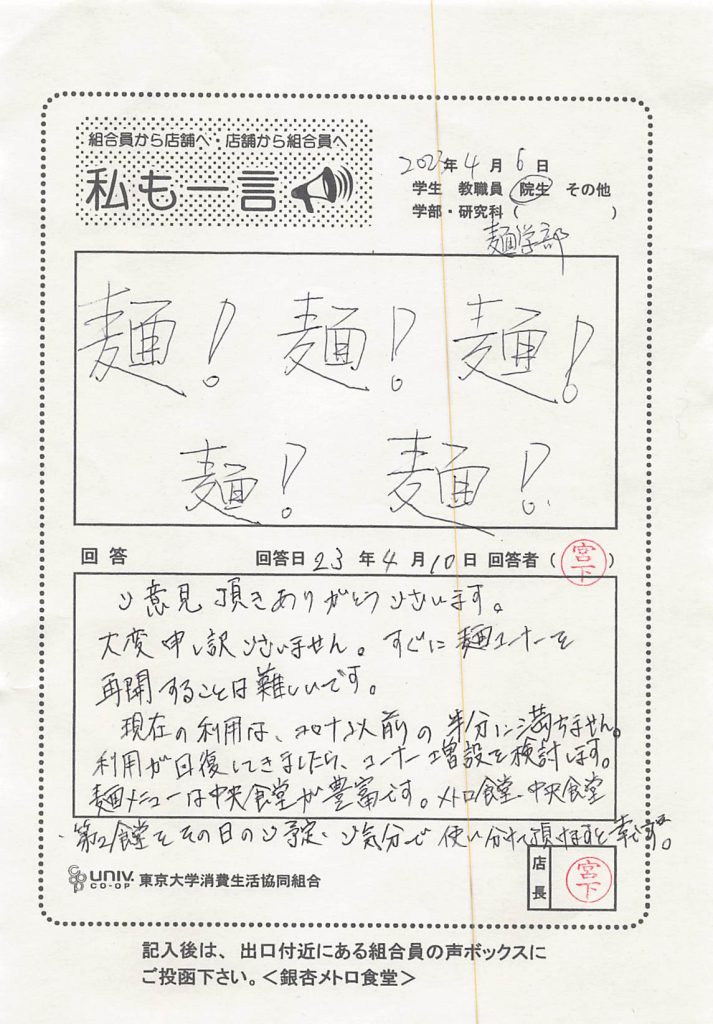 組合員から店舗へ・店舗から組合員へ
私も一言
2023年4月6日
学生 教職員 院生 その他
学部・研究科( )
麺学部
麺! 麺! 麺!
麺! 麺!
回答 回答日23年4月10日 回答者(宮下)
ご意見頂きありがとうございます。
大変申し訳ございません。すぐに麺コーナーを
再開することは難しいです。
現在の利用は、コロナ以前の半分に満ちません。
利用が回復してきましたら、コーナー増設を検討します。
麺メニューは中央食堂が豊富です。メトロ食堂、中央食堂
第2食堂をその日のご予定、ご気分で使い分けて頂けますと幸いです。
店長 宮下
UNIV. CO-OP 東京大学消費生活協同組合
記入後は、出口付近にある組合員の声ボックスに
ご投函下さい。<銀杏メトロ食堂>